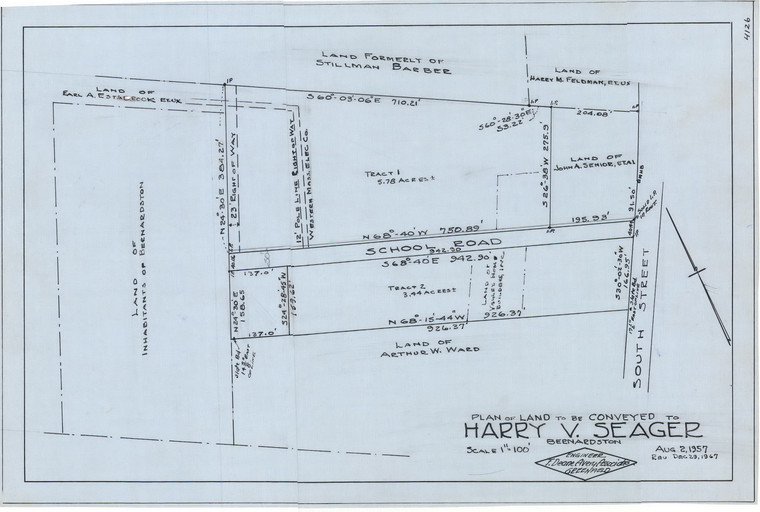 4126
LAND FORMERLY OF
STILLMAN BARBER
LAND OF
HARRY M. FELDMAN, ET UX
LAND OF
EARL A. ESTABROOK ET UX
IP
S 60°-03-06" E 710.21'
S 60°-28-30" E
53.22'
204.08'
N 24-30 E 384.27'
23' RIGHT OF WAY
12' POLE LINE RIGHT OF WAY
WESTERN MASS. ELEC. CO.
TRACT 1
5.78 ACRES ±
S 26°-38 W 275.9'
LAND OF
JOHN A. SENIOR, ET AL
91.50'
195.93'
N 68°-40' W 750.89'
SCHOOL ROAD
942.90
S 68°-40 E 942.90'
LAND OF
INHABITANTS OF BERNARDSTON
137.0'
N 24°30 E
158.65
S 24°-28-45" W
159.62'
TRACT 2
3.44 ACRES ±
LAND OF
S 30°-02-30" W
166.95'
SOUTH STREET
N 68°-15'-44" W 926.37'
926.37
137.0'
LAND OF
ARTHUR W. WARD
PLAN OF LAND TO BE CONVEYED TO
HARRY V. SEAGER
BERNARDSTON
SCALE 1"-100'
AUG 2, 1957
REV DEC 29, 1967
ENGINEER
T. Deane Avery Associates
GREENFIELD